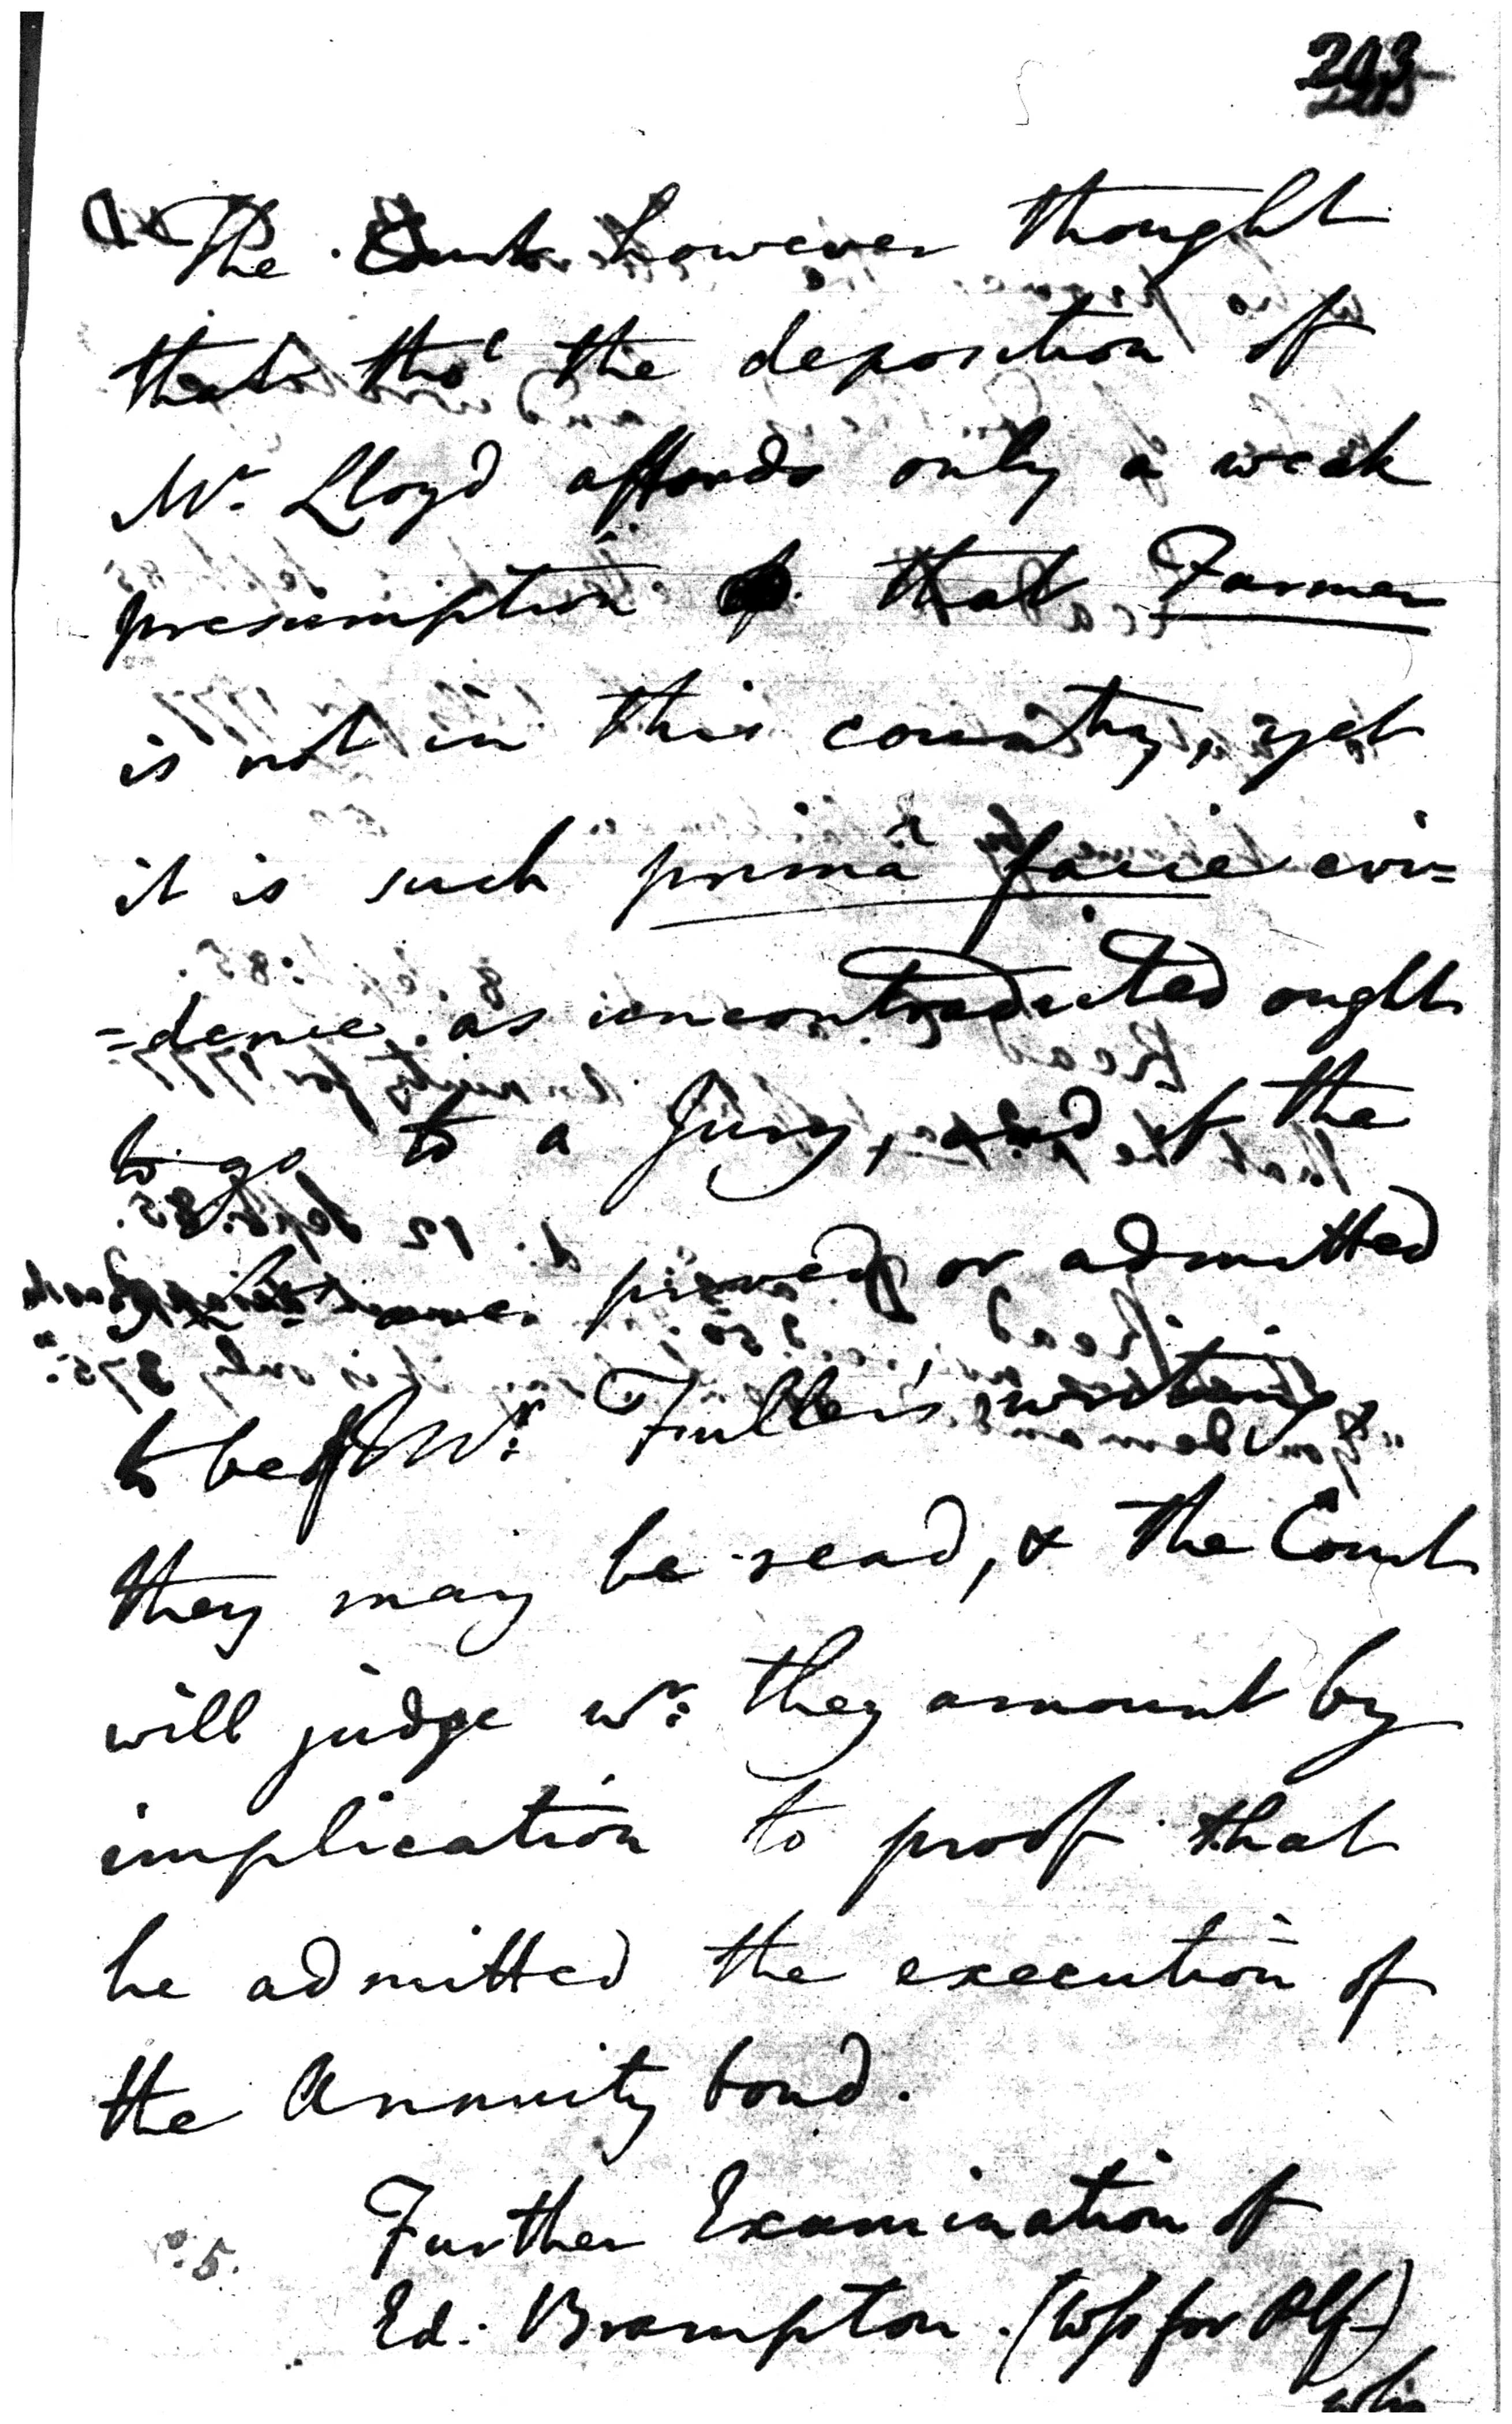 203
The Court however thought
that tho' the deposition of
Mr. Lloyd affords only a weak
presumption that Farmer
is not in this country, yet
it is such primâ facie evi=
=dence as uncontradicted ought
to go to a Jury, and if the
Letters are proved or admitted
to be Mr: Fuller's writing
they may be read, & the Court
will judge wr: they amount by
implication to proof that
he admitted the execution of
the Annuity bond.
Further Examination of
Ed: Brampton. (Wss for Plf)
who